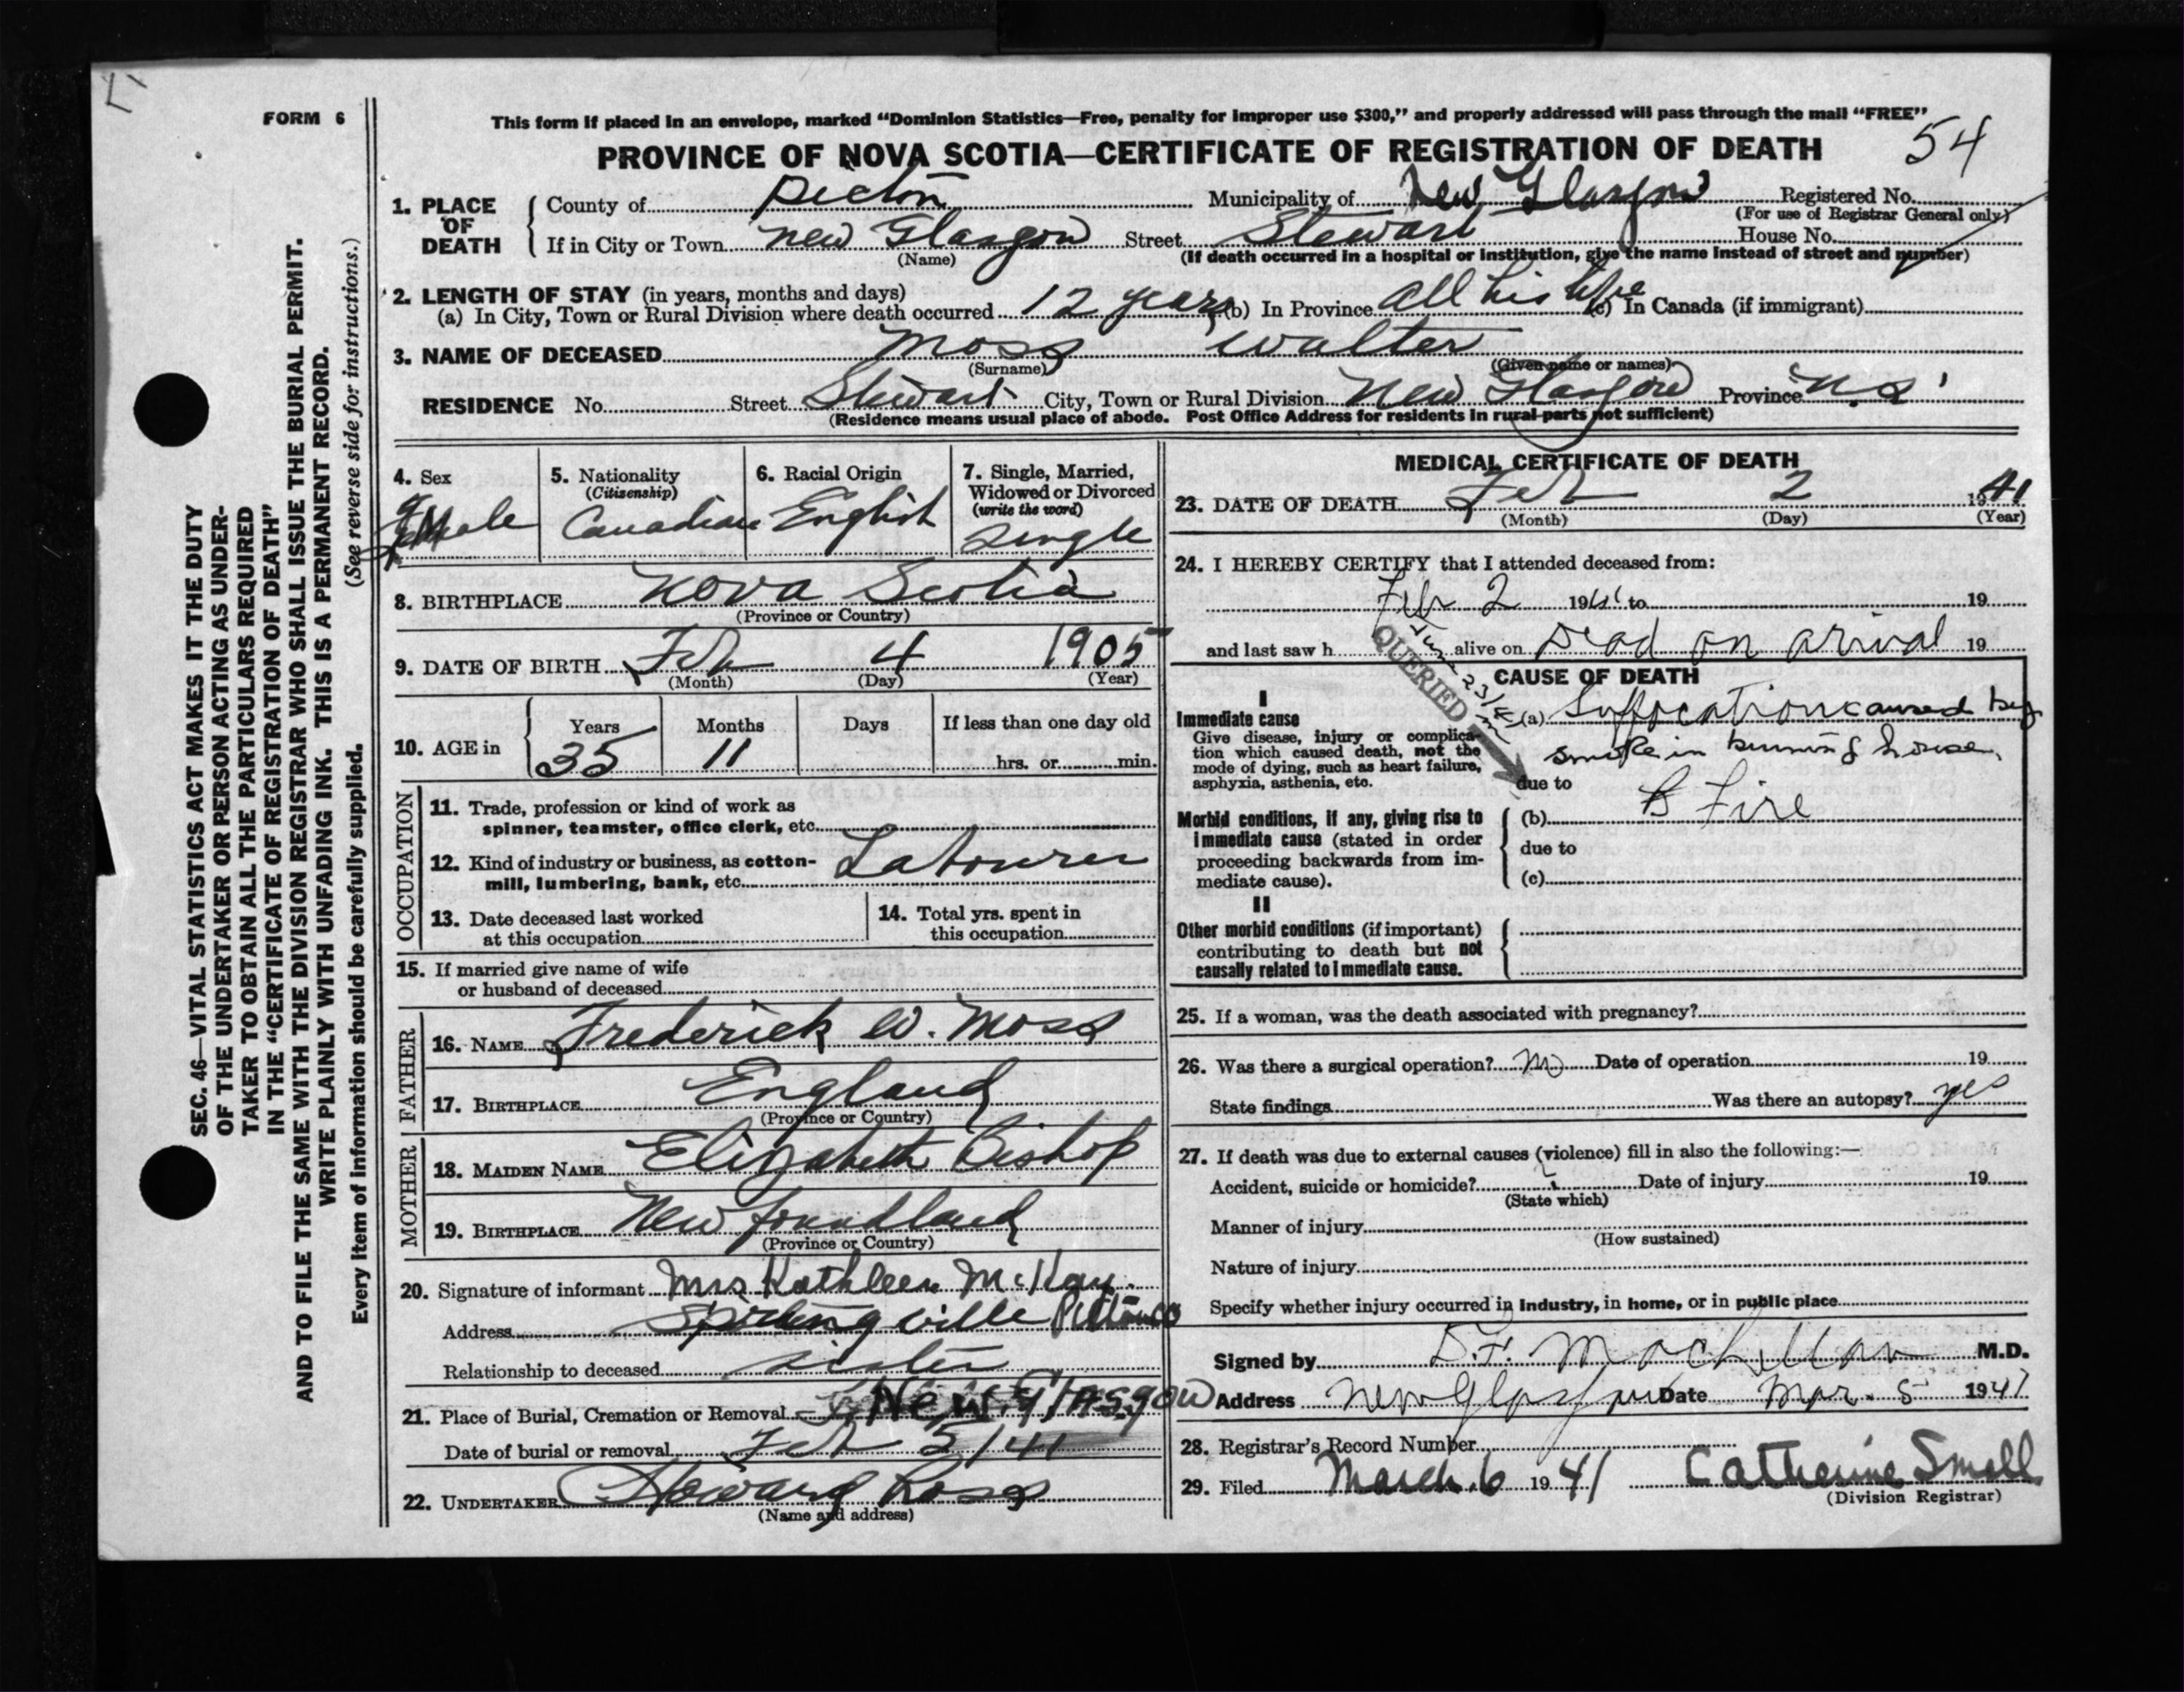 FORM 6
This form if placed in an envelope, marked “Dominion Statistics—Free, penalty for improper use $300,” and properly addressed will pass through the mail “FREE”
PROVINCE OF NOVA SCOTIA—CERTIFICATE OF REGISTRATION OF DEATH 54
1. PLACE OF DEATH
County of Pictou Municipality of New Glasgow Registered No.
(For use of Registrar General only)
If in City or Town New Glasgow Street Stewart House No.
(Name) (If death occurred in a hospital or institution, give the name instead of street and number)
2. LENGTH OF STAY (in years, months and days)
(a) In City, Town or Rural Division where death occurred 12 years (b) In Province all his life (c) In Canada (if immigrant)
3. NAME OF DECEASED Moss Walter
(Surname) (Given name or names)
RESIDENCE No. Street Stewart City, Town or Rural Division New Glasgow Province N.S.
(Residence means usual place of abode. Post Office Address for residents in rural parts not sufficient)
4. Sex Male
5. Nationality (Citizenship) Canadian
6. Racial Origin English
7. Single, Married, Widowed or Divorced (write the word) Single
8. BIRTHPLACE Nova Scotia
(Province or Country)
9. DATE OF BIRTH Feb 4 1905
(Month) (Day) (Year)
10. AGE in
Years Months Days If less than one day old
35 11 hrs. or min.
OCCUPATION
11. Trade, profession or kind of work as
spinner, teamster, office clerk, etc.
12. Kind of industry or business, as cotton-
mill, lumbering, bank, etc. Labourer
13. Date deceased last worked
at this occupation
14. Total yrs. spent in
this occupation
15. If married give name of wife
or husband of deceased
FATHER
16. NAME Frederick W. Moss
17. BIRTHPLACE England
(Province or Country)
MOTHER
18. MAIDEN NAME Elizabeth Bishop
19. BIRTHPLACE Newfoundland
(Province or Country)
20. Signature of informant Mrs Kathleen McKay
Address Pictou Co
Relationship to deceased sister
21. Place of Burial, Cremation or Removal New Glasgow
Date of burial or removal Feb 5/41
22. UNDERTAKER Howard Ross
(Name and address)
MEDICAL CERTIFICATE OF DEATH
23. DATE OF DEATH Feb 2 1941
(Month) (Day) (Year)
24. I HEREBY CERTIFY that I attended deceased from:
Feb 2 1941 to 19
and last saw h alive on Dead on arival 19
QUERIED
CAUSE OF DEATH
I
Immediate cause
Give disease, injury or complica-
tion which caused death, not the
mode of dying, such as heart failure,
asphyxia, asthenia, etc.
(a) Suffocation caused by
smoke in burning house
due to
Morbid conditions, if any, giving rise to
immediate cause (stated in order
proceeding backwards from im-
mediate cause).
(b) Fire
due to
(c)
II
Other morbid conditions (if important)
contributing to death but not
causally related to immediate cause.
25. If a woman, was the death associated with pregnancy?
26. Was there a surgical operation? no Date of operation 19
State findings Was there an autopsy? yes
27. If death was due to external causes (violence) fill in also the following:—
Accident, suicide or homicide? Date of injury 19
(State which)
Manner of injury
(How sustained)
Nature of injury
Specify whether injury occurred in industry, in home, or in public place
Signed by M.D.
Address New Glasgow Date Mar. 5 1941
28. Registrar's Record Number
29. Filed March 6 1941 Catherine Small
(Division Registrar)
SEC. 46—VITAL STATISTICS ACT MAKES IT THE DUTY
OF THE UNDERTAKER OR PERSON ACTING AS UNDER-
TAKER TO OBTAIN ALL THE PARTICULARS REQUIRED
IN THE “CERTIFICATE OF REGISTRATION OF DEATH”
AND TO FILE THE SAME WITH THE DIVISION REGISTRAR WHO SHALL ISSUE THE BURIAL PERMIT.
WRITE PLAINLY WITH UNFADING INK. THIS IS A PERMANENT RECORD.
(See reverse side for instructions.)
Every item of information should be carefully supplied.